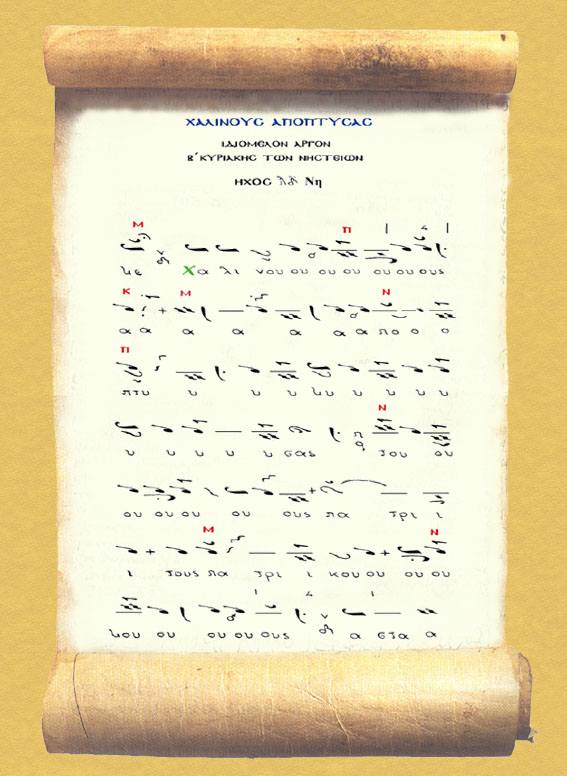 ΧΑΛΙΝΟΥΣ ΑΠΟΠΤΥΣΑΣ
ΙΔΙΟΜΕΛΟΝ ΑΡΓΟΝ
Β΄ ΚΥΡΙΑΚΗΣ ΤΩΝ ΝΗΣΤΕΙΩΝ
ΗΧΟΣ Νη
Μ Π
κε Χα λι νου ου ου ου ου ου ους
Κ Μ Ν
α α α α α α α πο ο ο
Π
πτυ υ υ υ κυ υ υ υ υ
Ν
υ υ υ υ υ σας του ου
ου ου ου ου ους πα τρι ι
Μ Ν
ι τους πα τρι ι κου ου ου ου
κου ου ου ου ους α στα α